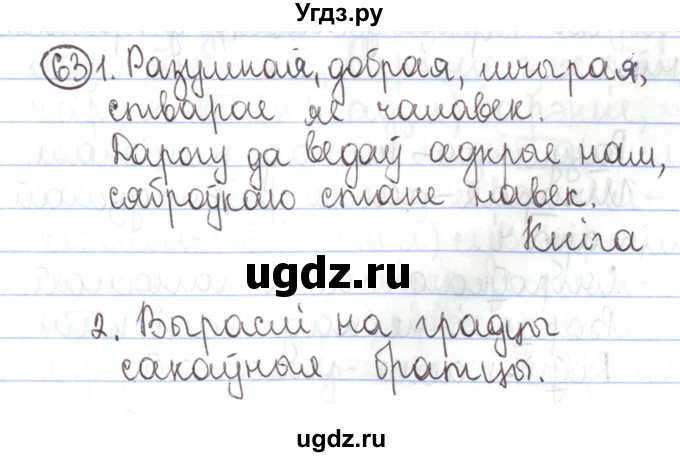 Угдз.ру
63 1. Разумная, добрая, шчырая,
стварае яе чалавек.
Дарогу да ведаў адкрые нам,
сяброўкаю стане навек.
Кніга
ugdz.ru
2. Выраслі на градцы
сакаўныя братцы.
ugdz.ru